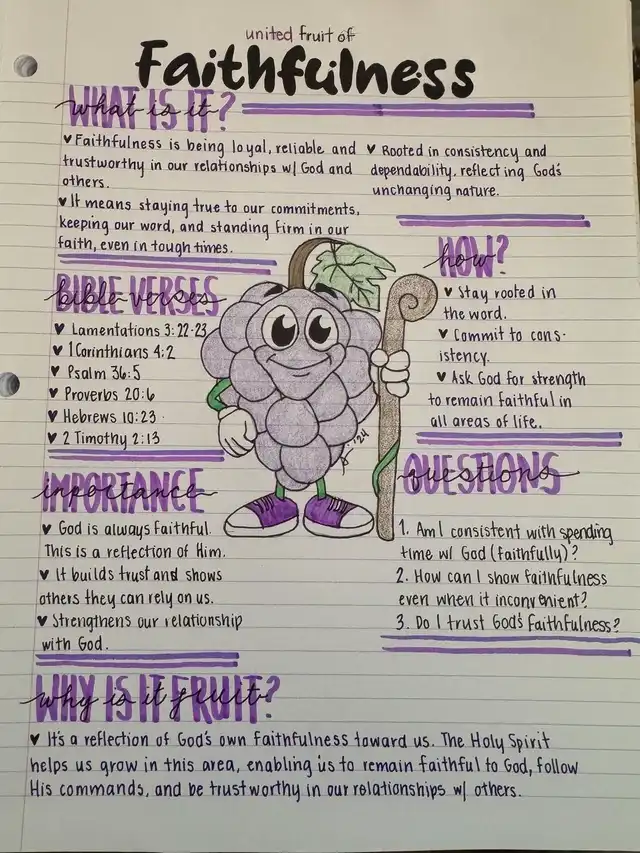 united fruit of
Faithfulness
WHAT IS IT?
♥ Faithfulness is being loyal, reliable and
trustworthy in our relationships w/ God and
others.
♥ It means staying true to our commitments,
keeping our word, and standing firm in our
faith, even in tough times.
♥ Rooted in consistency and
dependability, reflecting God's
unchanging nature.
HOW?
♥ Stay rooted in
the word.
♥ Commit to cons-
istency.
♥ Ask God for strength
to remain faithful in
all areas of life.
BIBLE VERSES
♥ Lamentations 3:22-23
♥ 1 Corinthians 4:2
♥ Psalm 36:5
♥ Proverbs 20:6
♥ Hebrews 10:23
♥ 2 Timothy 2:13
IMPORTANCE
♥ God is always faithful.
This is a reflection of Him.
♥ It builds trust and shows
others they can rely on us.
♥ Strengthens our relationship
with God.
QUESTIONS
1. Am I consistent with spending
time w/ God (faithfully)?
2. How can I show faithfulness
even when it inconvenient?
3. Do I trust God's faithfulness?
WHY IS IT FRUIT?
♥ It's a reflection of God's own faithfulness toward us. The Holy Spirit
helps us grow in this area, enabling us to remain faithful to God, follow
His commands, and be trustworthy in our relationships w/ others.